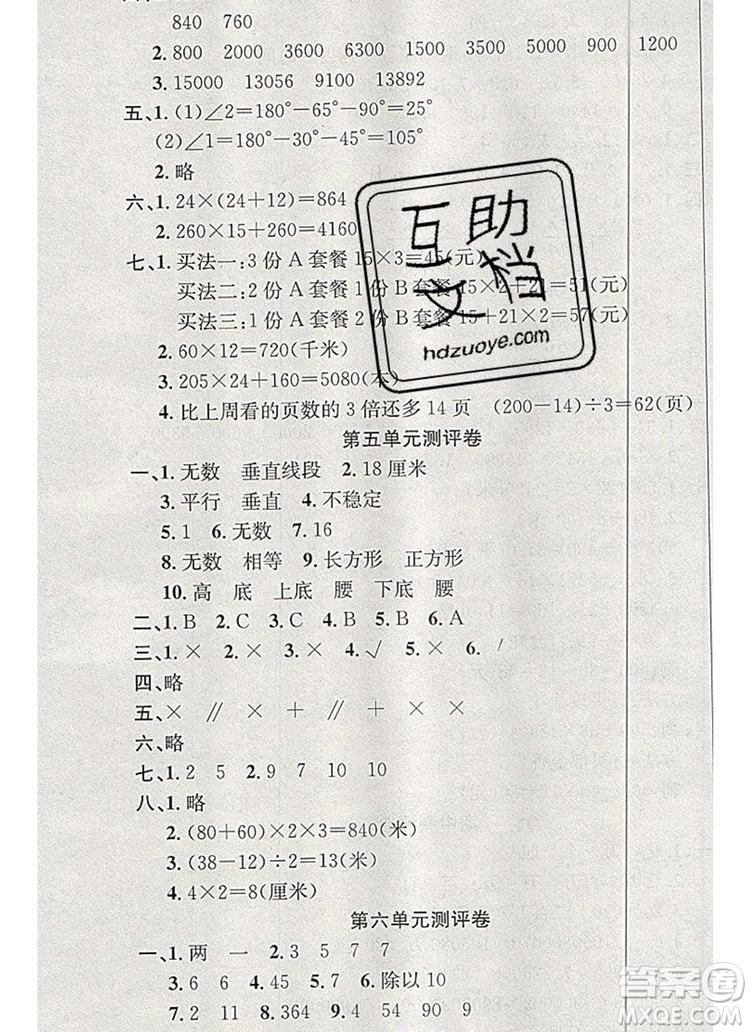 840 760
2. 800 2000 3600 6300 5000 900 1200
3. 15000 13056 9100 13892
五、1. (1)∠2=180°-65°-90°=25°
(2)∠1=180°-30°-45°=105°
2. 略
六、1. 24×(24+12)=864
2. 260×15+260=4160
七、1. 买法一:3 份 A 套餐 15×3=45(元)
买法二:2 份 A 套餐 1 份 15×2+21=51(元)
买法三:1 份 A 套餐 2 份 B 套餐 15+21×2=57(元)
2. 60×12=720(千米)
3. 205×24+160=5080(本)
4. 比上周看的页数的 3 倍还多 14 页 (200-14)÷3=62(页)
第五单元测评卷
一、1. 无数 垂直线段 2. 18 厘米
3. 平行 垂直 4. 不稳定
5. 1 6. 无数 7. 16
8. 无数 相等 9. 长方形 正方形
10. 高 底 上底 腰 下底 腰
二、1. B 2. C 3. C 4. B 5. B 6. A
三、1. × 2. × 3. × 4. √ 5. × 6. /
四、略
五、× ∥ × + ∥ ∥ + × ×
六、略
七、1. 2 5 2. 9 7 10 10
八、1. 略
2. (80+60)×2×3=840(米)
3. (38-12)÷2=13(米)
4. 4×2=8(厘米)
第六单元测评卷
一、1. 两 一 2. 3 5 7 7
3. 6 6 4. 45 5. 7 6. 除以 10
7. 2 11 8. 364 9. 4 54 90 9
互助
文档
hdzuoye.com
答案圈
MXQE.COM